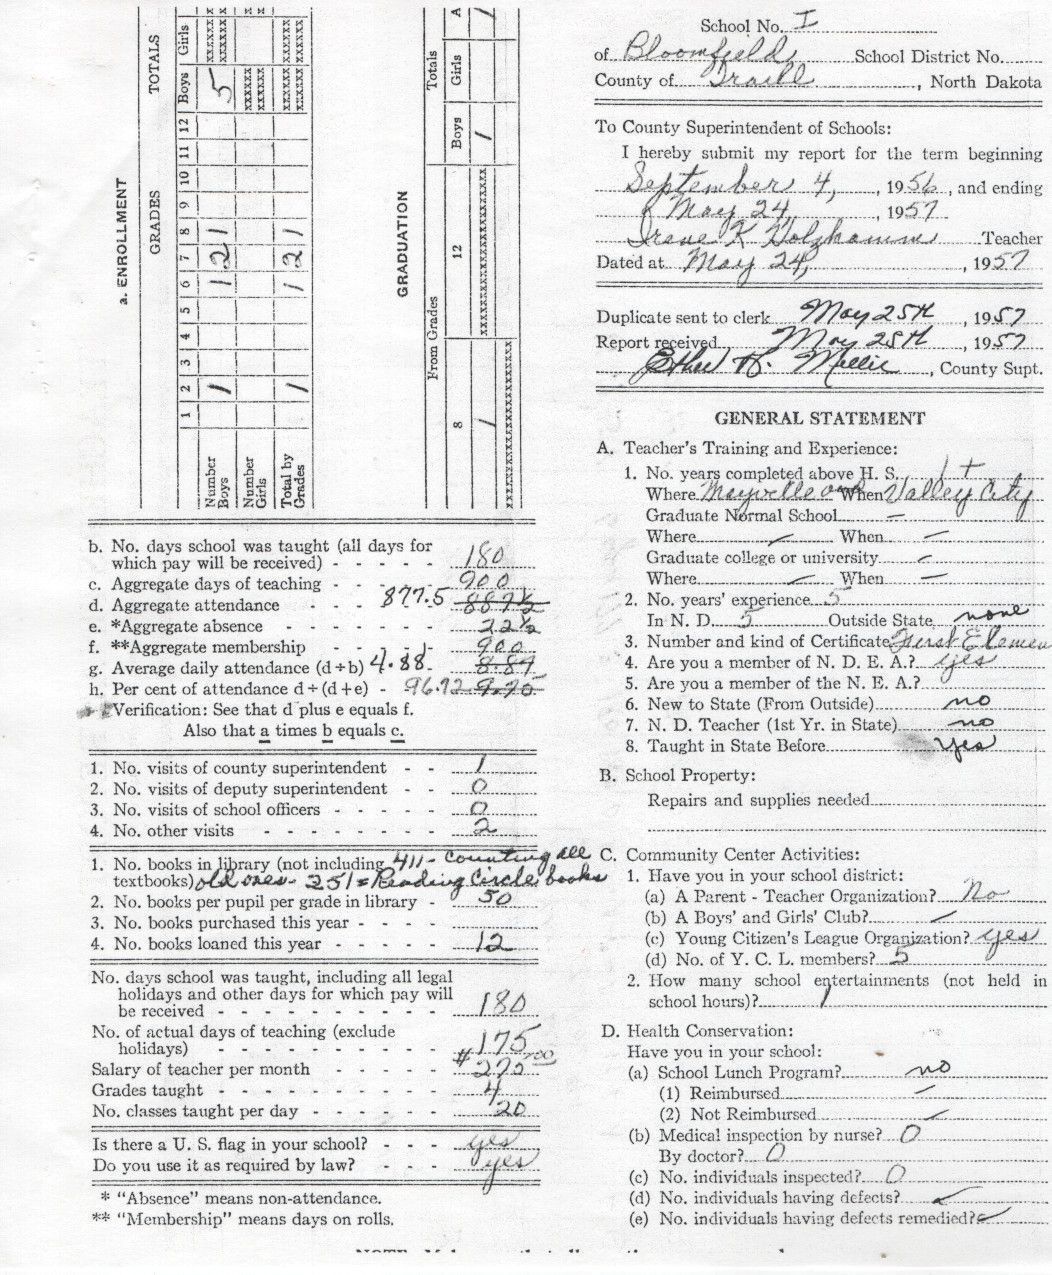 School No. I
of Bloomfield School District No.
County of Traill, North Dakota
To County Superintendent of Schools:
I hereby submit my report for the term beginning
September 4, 1956, and ending
May 24, 1957
Irene K Teacher
Dated at May 24, 1957
Duplicate sent to clerk May 25th, 1957
Report received May 25th, 1957
Ethel H. , County Supt.
GENERAL STATEMENT
A. Teacher's Training and Experience:
1. No. years completed above H. S. 1+
Where Mayville and When Valley City
Graduate Normal School —
Where — When —
Graduate college or university —
Where — When —
2. No. years' experience 5
In N. D. 5 Outside State none
3. Number and kind of Certificate First Elemen
4. Are you a member of N. D. E. A.? yes
5. Are you a member of the N. E. A.?
6. New to State (From Outside) no
7. N. D. Teacher (1st Yr. in State) no
8. Taught in State Before yes
B. School Property:
Repairs and supplies needed
C. Community Center Activities:
1. Have you in your school district:
(a) A Parent - Teacher Organization? No
(b) A Boys' and Girls' Club? —
(c) Young Citizen's League Organization? yes
(d) No. of Y. C. L. members? 5
2. How many school entertainments (not held in
school hours)? 1
D. Health Conservation:
Have you in your school:
(a) School Lunch Program? no
(1) Reimbursed —
(2) Not Reimbursed —
(b) Medical inspection by nurse? 0
By doctor? 0
(c) No. individuals inspected? 0
(d) No. individuals having defects? ✓
(e) No. individuals having defects remedied? ✓
a. ENROLLMENT
GRADES TOTALS
1 2 3 4 5 6 7 8 9 10 11 12 Boys Girls
Number Boys 1 1 2 1 5 xxxxxx
Number Girls xxxxxx x
Total by Grades 1 1 2 1 xxxxxx xxxxxx
GRADUATION
From Grades Totals
8 12 Boys Girls A
1 xxxxxxxxxxxxxxxxxxx 1 1
xxxxxxxxxxxxxxxxxxx
b. No. days school was taught (all days for
which pay will be received) - - - - - 180
c. Aggregate days of teaching - - - - - 900
d. Aggregate attendance - - - 877.5 887½
e. *Aggregate absence - - - - - - - 22½
f. **Aggregate membership - - - - - 900
g. Average daily attendance (d÷b) 4.88 8.87
h. Per cent of attendance d÷(d+e) - 96.92 9.75
Verification: See that d plus e equals f.
Also that a times b equals c.
1. No. visits of county superintendent - - 1
2. No. visits of deputy superintendent - - 0
3. No. visits of school officers - - - - - 0
4. No. other visits - - - - - - - - 2
1. No. books in library (not including 411 - counting all
textbooks) old ones - 251 = Reading Circle books
2. No. books per pupil per grade in library - 50
3. No. books purchased this year - - - -
4. No. books loaned this year - - - - - 12
No. days school was taught, including all legal
holidays and other days for which pay will
be received - - - - - - - - - - 180
No. of actual days of teaching (exclude
holidays) - - - - - - - - - - 175
Salary of teacher per month - - - - - #275.00
Grades taught - - - - - - - - - - 4
No. classes taught per day - - - - - - 20
Is there a U. S. flag in your school? - - - yes
Do you use it as required by law? - - - yes
* "Absence" means non-attendance.
** "Membership" means days on rolls.